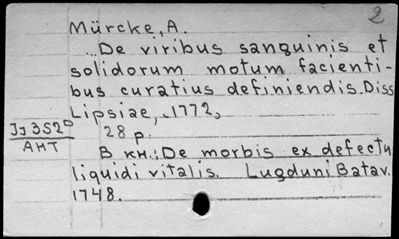 2
Mürcke, A.
...De viribus sanguinis et
solidorum motum facienti-
bus curatius definiendis. Diss
Lipsiae, 1772,
28 p.
В кн.: De morbis ex defectu
liquidi vitalis. Lugduni Batav.
1748.
АНТ